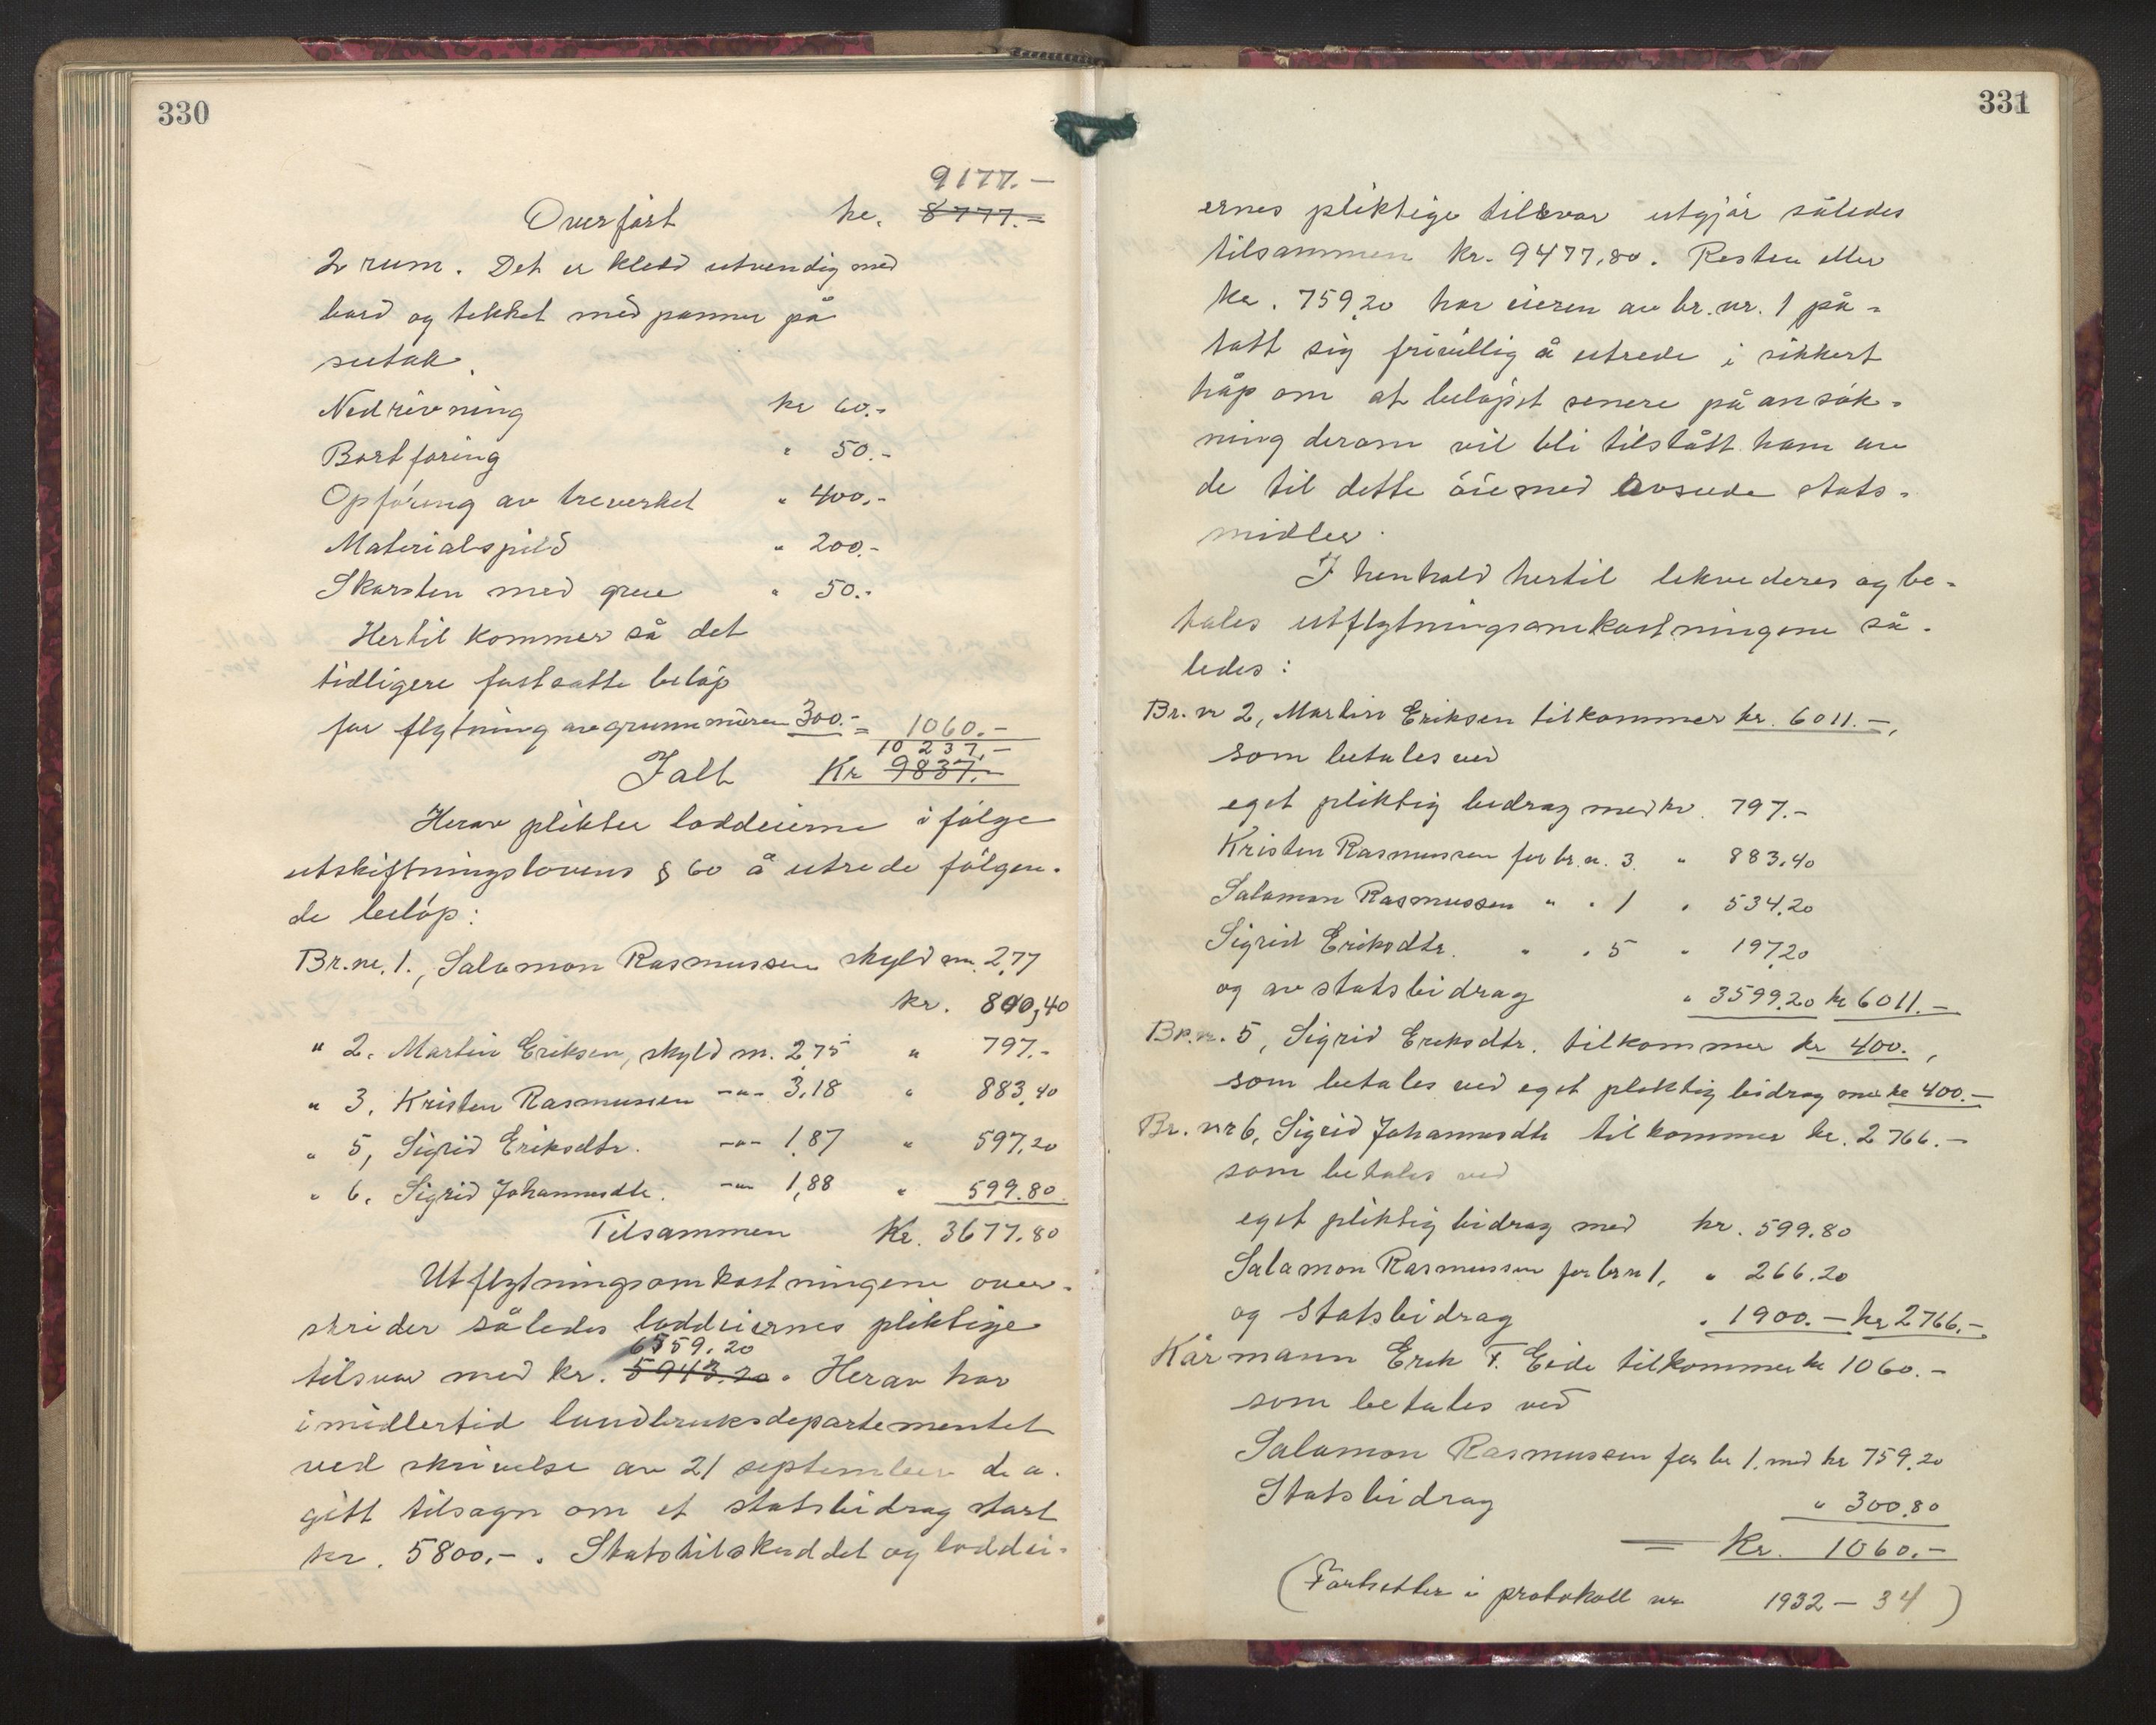 330
9177.-
Overført kr. 8777.-
2 rum. Det er kledd utvendig med
bord og tekket med panner på
sutak.
Nedrivning kr 60.-
Bortføring " 50.-
Opføring av treverket " 400.-
Materialspild " 200.-
Skorsten med grue " 50.-
Hertil kommer så det
tidligere fastsatte beløp
for flytning av grunnmuren 300.- = 1060.-
10 237.-
Ialt Kr 9837.-
Herav plikter loddeierne i følge
utskiftningslovens § 60 å utrede følgen-
de beløp:
Br.nr. 1., Salamon Rasmussen skyld m. 2,77
kr. 800,40
" 2. Martin Eriksen, skyld m. 2,75 " 797.-
" 3. Kristen Rasmussen -"- 3,18 " 883,40
" 5, Sigrid Eriksdtr. -"- 1,87 " 597,20
" 6. Sigrid Johannesdtr. -"- 1,88 " 599.80
Tilsammen Kr. 3677.80
Utflytningsomkostningene over-
skrider således loddeiernes pliktige
6559.20
tilsvar med kr. 5943.20. Herav har
imidlertid landbruksdepartementet
ved skrivelse av 21 september d.a.
gitt tilsagn om et statsbidrag stort
kr. 5800.-. Statstilskuddet og loddei-
331
ernes pliktige tilsvar utgjør således
tilsammen kr. 9477,80. Resten eller
kr. 759,20 har eieren av br.nr. 1 på-
tatt sig frivillig å utrede i sikkert
håp om at beløpet senere på ansøk-
ning derom vil bli tilstått ham av
de til dette øiemed avsede stats-
midler.
I henhold hertil lekvideres og be-
tales utflytningsomkostningene så-
ledes:
Br. nr 2, Martin Eriksen tilkommer kr. 6011.-,
som betales ved
eget pliktig bidrag med kr. 797.-
Kristen Rasmussen for br. nr. 3. " 883.40
Salamon Rasmussen " " 1 " 534.20
Sigrid Eriksdtr. " " 5 " 197,20
og av statsbidrag " 3599.20 kr 6011.-
Br.nr. 5, Sigrid Eriksdtr. tilkommer kr 400.,
som betales ved eget pliktig bidrag med kr 400.-
Br. nr 6, Sigrid Johannesdtr tilkommer kr. 2766.-
som betales ved
eget pliktig bidrag med kr. 599.80
Salamon Rasmussen for br nr 1, " 266.20
og statsbidrag " 1900.- kr 2766.-
Kårmann Erik T. Eide tilkommer kr 1060.-
som betales ved
Salamon Rasmussen for br 1. med kr 759.20
Statsbidrag " 300.80
= Kr. 1060.-
(Fortsetter i protokoll nr 1932 - 34)